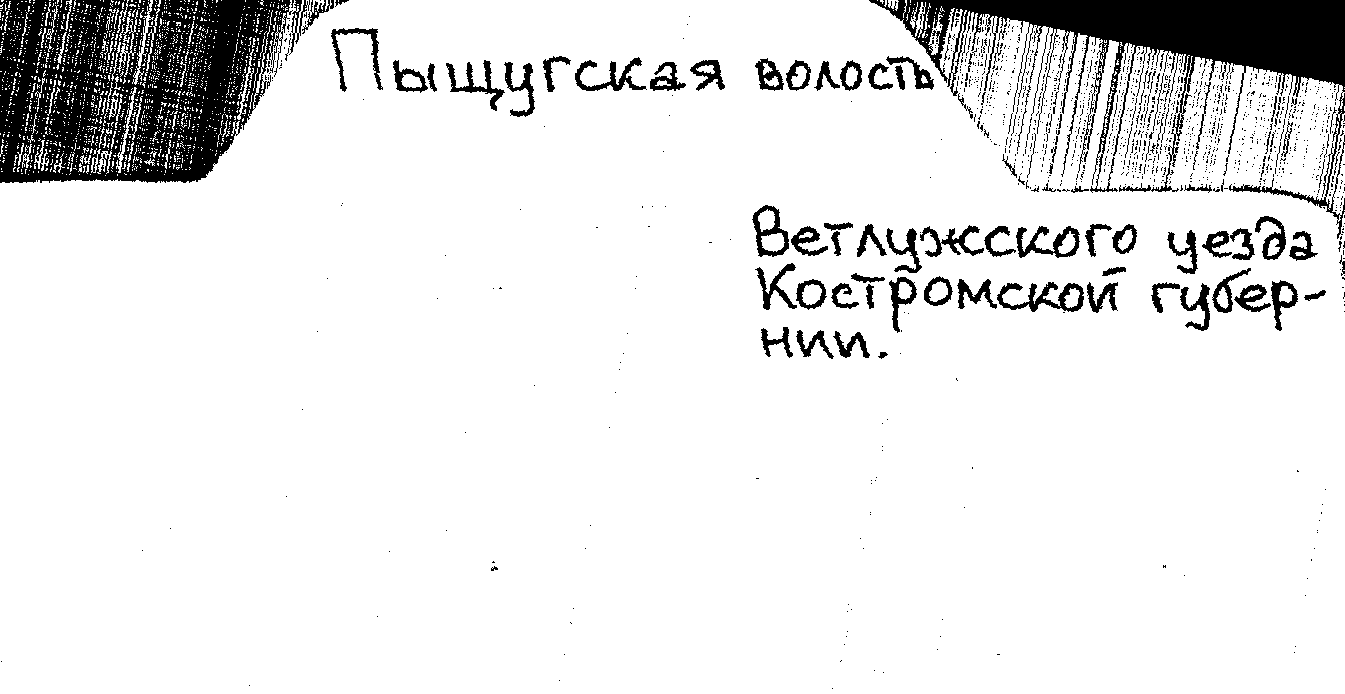 Пыщугская волость
Ветлужского уезда
Костромской губер-
нии.